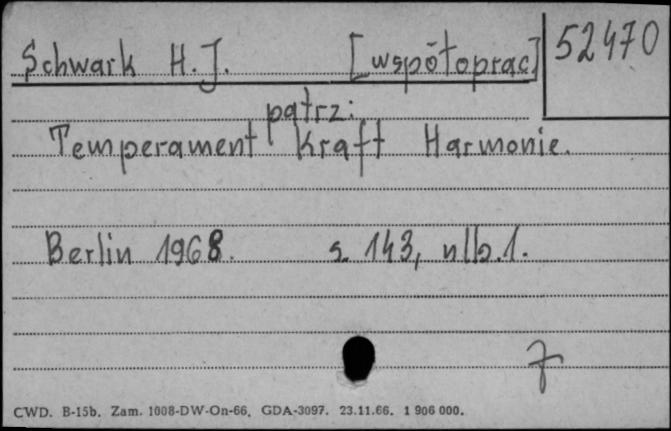 Schwark H.J. [współoprac] 52470
patrz:
Temperament Kraft Harmonie.
Berlin 1968. s. 143, nlb.1.
CWD. B-15b. Zam. 1008-DW-On-66. GDA-3097. 23.11.66. 1 906 000.